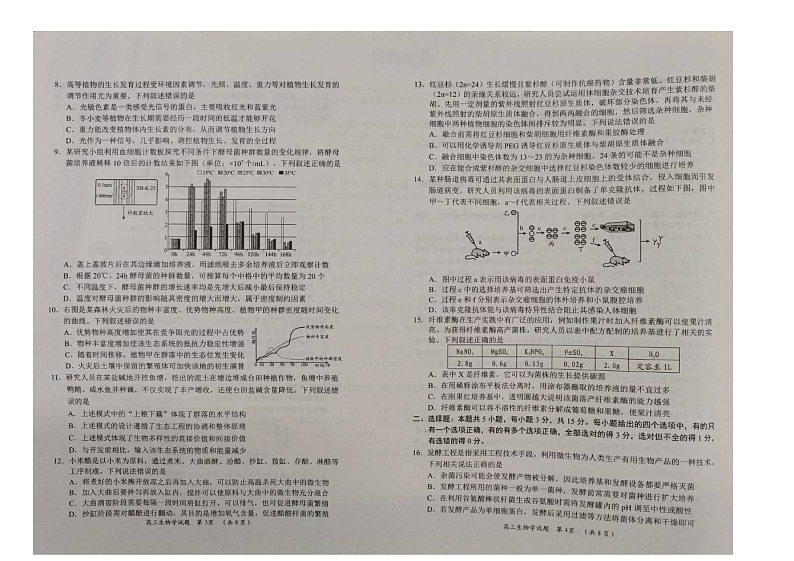 8、高等植物的生长发育过程受环境因素调节，光照、温度、重力等对植物生长发育的
调节作用尤为重要。下列叙述错误的是
A．光敏色素是一类感受光信号的蛋白，主要吸收红光和蓝紫光
B．冬小麦等植物在生长期需要经历一段时间的低温才能够开花
C．重力能改变植物体内生长素的分布，从而调节植物生长方向
D．光作为一种信号，几乎影响、调控植物生长、发育的全过程
9．某研究小组利用血细胞计数板探究不同条件下酵母菌种群数量的变化规律，将酵母
菌培养液稀释 10 倍后的计数结果如下图（单位：×10⁷ 个/mL）。下列叙述正确的是
15℃ 20℃ 25℃ 30℃ 35℃
0.1mm
XB-K-25
计数室放大
0h 24h 48h 72h 96h 120h 144h 168h
A．盖上盖玻片后在其边缘滴加培养液，用滤纸吸去多余培养液后立即观察计数
B．根据 20℃、24h 酵母菌的种群数量，可推算每个中格中的平均数量为 20 个
C．不同温度下，酵母菌种群的增长速率均是先增大后减小最后保持稳定
D．温度对酵母菌种群的影响随其密度的增大而增大，属于密度制约因素
10．右图是某森林火灾后的物种丰富度、优势物种高度、植物甲的种群密度随时间变化
的曲线。下列叙述错误的是
A．优势物种高度增加使其在竞争阳光的过程中占优势
B．物种丰富度增加使该生态系统的抵抗力稳定性增强
C．随着时间推移，植物甲在群落中的生态位发生变化
D．火灾后土壤中保留的繁殖体可加快该地的初生演替
优势物种高度
物种丰富度
植物甲的种群密度
时间
11．研究人员在某盐碱地开挖鱼塘，挖出的泥土在塘边堆成台田种植作物，鱼塘中养殖
鸭鹅、咸水鱼并种藕，不仅实现了丰产增收，还使台田盐碱含量降低。下列叙述错
误的是
A．上述模式中的“上粮下藕”体现了群落的水平结构
B．上述模式的设计遵循了生态工程的协调和整体原理
C．上述模式体现了生物多样性的直接价值和间接价值
D．与开发前相比，输入该生态系统的物质和能量减少
12．小米醋是以小米为原料，通过煮米、大曲酒酵、汾醋、抄缸、拨缸、存酷、淋醋等
工序制成。下列说法错误的是
A．将煮好的小米摊开放凉之后再加入大曲，可以防止高温杀死大曲中的微生物
B．加入大曲后要拌匀再放入缸内，搅拌可以使原料与大曲中的微生物充分混合
C．大曲酒窖阶段需要每隔一段时间将缸打开，可以排气，也可促进酵母菌繁殖
D．抄缸阶段需对醋醅进行翻动，其目的是增加氧气含量，促进醋酸杆菌的繁殖
高三生物学试题 第 3页 （共 8 页）
13．红豆杉（2n=24）生长缓慢且紫杉醇（可制作抗癌药物）含量非常低。红豆杉和柴胡
（2n=12）的亲缘关系较远，研究人员尝试运用体细胞杂交技术培育产生紫杉醇的柴
胡。先用一定剂量的紫外线照射红豆杉原生质体，破坏部分染色体，再将其与未经
紫外线照射的柴胡原生质体融合，得到两两融合的细胞，然后筛选杂种细胞。杂种
细胞中两种植物细胞的染色体间排斥较为明显。下列说法错误的是
A．融合前需将红豆杉细胞和柴胡细胞用纤维素酶和果胶酶处理
B．可以用化学诱导剂 PEG 诱导红豆杉原生质体与柴胡原生质体融合
C．融合细胞中染色体数为 13～23 的为杂种细胞，24 条的可能不是杂种细胞
D．应在能合成紫杉醇的杂交细胞中选择红豆杉染色体数较少的细胞进行培养
14．某种肠道病毒可通过其表面蛋白与人肠道上皮细胞上的受体结合，侵入细胞而引发
肠道病变。研究人员利用该病毒的表面蛋白制备了单克隆抗体，过程如下图，图中
甲～丁代表不同细胞，a～f 代表相关过程。下列叙述错误是
乙
a
甲
b
c
丙
丁
e
f
A．图中过程 a 表示用该病毒的表面蛋白免疫小鼠
B．过程 c 中的选择培养基可筛选出产生特定抗体的杂交瘤细胞
C．过程 e 和 f 分别表示杂交瘤细胞的体外培养和小鼠腹腔培养
D．该单克隆抗体能与该病毒特异性结合阻止其感染人体细胞
15．纤维素酶在生产实践中有广泛的应用，例如制作果汁时加入纤维素酶可以使果汁清
亮。为获得纤维素酶高产菌株，研究人员以表中配方配制的培养基进行了相关的实
验。下列叙述正确的是
NaNO₃ MgSO₄ K₂HPO₄ FeSO₄ X H₂O
2.8g 0.6g 0.15g 0.02g 2.0g 定容至 1L
A．表中 X 是纤维素，它可以为菌株的生长提供碳源
B．在用稀释涂布平板法分离时，用涂布器蘸取的培养液的量不宜过多
C．在刚果红培养基中，透明圈越大说明该菌落产纤维素酶的能力越强
D．纤维素酶可以将不溶性的纤维素分解成葡萄糖和果糖，使果汁清亮
二、选择题：本题共 5 小题，每小题 3 分，共 15 分。每小题给出的四个选项中，有的只
有一个选项正确，有的有多个选项正确，全部选对的得 3 分，选对但不全的得 1 分，
有选错的得 0 分。
16．发酵工程是指采用工程技术手段，利用微生物为人类生产有用生物产品的一种技术。
下列相关说法正确的是
A．杂菌污染可能会使发酵产物被分解，因此培养基和发酵设备都要严格灭菌
B．发酵工程所用的菌种一般为单一菌种，发酵前常需要对菌种进行扩大培养
C．在利用谷氨酸棒状杆菌生成谷氨酸时需将发酵罐内的 pH 调至中性或酸性
D．若发酵产品为单细胞蛋白，发酵后采用过滤等方法将菌体分离和干燥即可
高三生物学试题 第 4页 （共 8 页）